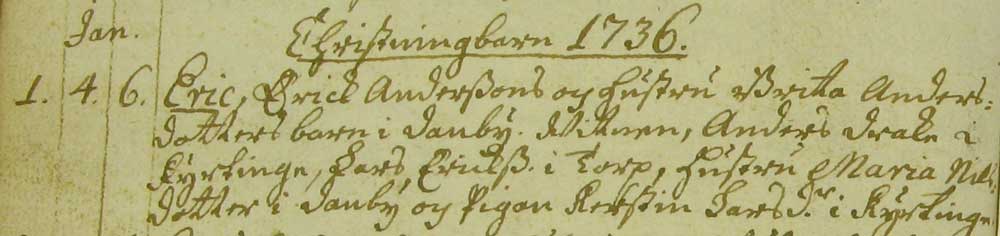 Jan. Christningbarn 1736.
1. 4. 6. Eric, Erick Anderßons och hustru Brita Anders-
dotters barn i Danby. Vittnen, Anders Drake i
Kyrkinge, Lars Erickß. i Torp, hustru Maria Nils
dotter i Danby och Pigan Kerstin Larsd.r i Kyrkinge